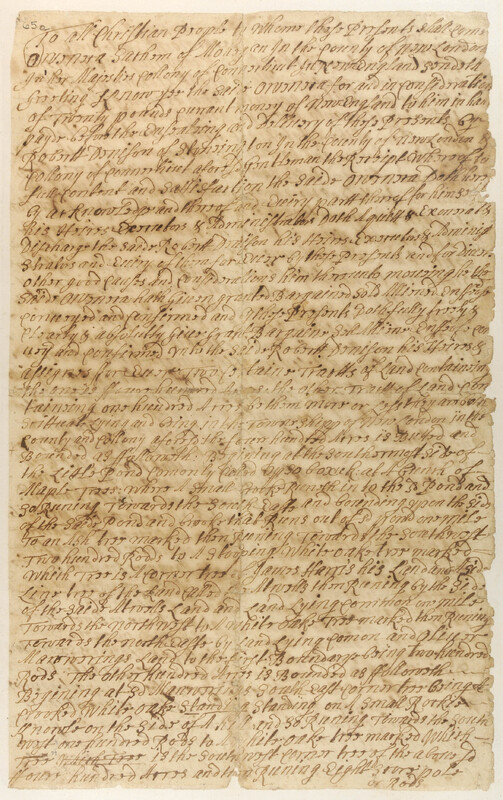 65a
To all Christian People to Whome these Presents shall Come
Oweneca Sachem of Mohegen In the County of New London
In her Majesties Collony of Connecticut In Newengland sendeth
Greeting Know yee the Said Oweneca for and in Consideration
of twenty pounds currant money of Newengland to him in han
payde before the Ensealing and Delivery of these Presents By
Robert Denison of Stonington In the County of New London
Collony of Connecticut aforesd Gentleman the Receipt Whereof to
full Content and Sattisfaction the Saide Oweneca Doth
by acknowledge and thereof and Every part thereof for himse
His Heires Executors & Administrators Doth Aquitt & Exonerate
Discharge the Saide Robert Denison his Heires Executors & Adminis
strators and Every of them for Ever By these Presents and for Divers
other good Causes and Considerations him thereunto moving to the
Saide Oweneca hath Given granted Bargained Sold Aliened Enfeoffed
Conveyed and Confirmed and By these Presents Doth fully freely &
Clearly & absolutly Give Grant Bargaine Sell Aliene Enfeoffe Con
vey and Confirm Unto the Saide Robert Denison his Heires &
Assignes for Ever Two Certaine Tracts of Land Containing
the one four hundred Acres the other Tract of Land Con
taining one hundred Acres be them more or less they are
Scituate Lying and being in the Township of New London in the
County and Collony aforesd the four hundred Acres is Butted and
Bounded as followeth Begining at the Southermost Side of
the Little Pond Comonly Called at A Clump of
Maple Trees Where A Small Brooke Runeth in to the Sd Pond and
So Runing Towards the South East and bounding upon the Side
of the Saide Pond and brooke that Runs out of Sd Pond
to An Ash tree marked then Runing Towards the Southwest
Two hundred Rods to A Stooping White oake tree marked
Which Tree is A Corner tree of James Harris his Land and A
Line tree of the Land then Runing by the Side
of the Saide Land and Land Lying Common
Towards the Northwest to A White oake Tree marked then Runing
Towards the north East by Land Lying Comon and
Land to the first Boundarye being Two hundred
Rods The other hundred Acres is Bounded as followeth
Begining at Sd South East Corner tree being A
Crooked White oake Standing on A Small Rockie
Knowle on the Side of A Hill and So Runing Towards the South
west one hundred Rods to A White oake tree marked Which
Tree is the Southwest Corner tree of the abovesd
four hundred Acres and then Runing Eight Score pole
or Rods